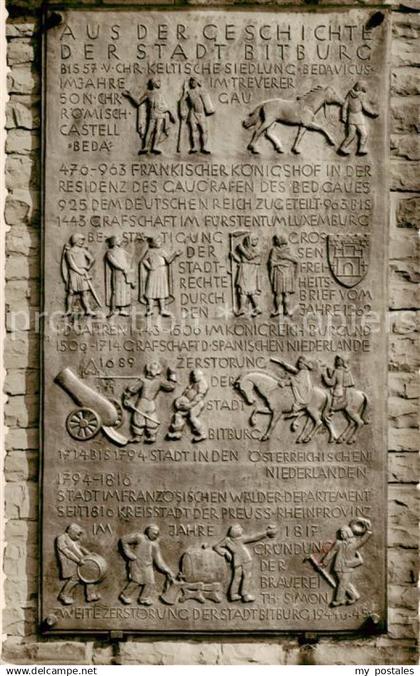 AUS DER GESCHICHTE
DER STADT BITBURG
BIS 57 V·CHR·KELTISCHE SIEDLUNG·BEDAVICUS·
IM JAHRE IM TREVERER
50 N·CHR GAU
RÖMISCH
CASTELL
·BEDA·
476-963 FRÄNKISCHER KÖNIGSHOF IN DER
RESIDENZ DES GAUGRAFEN DES BEDGAUES
925 DEM DEUTSCHEN REICH ZUGETEILT·963 BIS
1443 GRAFSCHAFT IM FÜRSTENTUM LUXEMBURG
BESTÄTIGUNG GROS
DER SEN
STADT- FREI
RECHTE HEITS-
DURCH BRIEF VOM
DEN JAHRE 1262
JAHREN 1443-1506 IM KÖNIGREICH BURGUND
1506-1714 GRAFSCHAFT D·SPANISCHEN NIEDERLANDE
1689 ZERSTÖRUNG
DER
STADT
BITBURG
1714 BIS 1794 STADT IN DEN ÖSTERREICHISCHEN
NIEDERLANDEN
1794-1816
STADT IM FRANZÖSISCHEN WÄLDER-DEPARTEMENT
SEIT 1816 KREISSTADT DER PREUSS·RHEINPROVINZ
IM JAHRE 1817
GRÜNDUNG
DER
BRAUEREI
TH·SIMON
ZWEITE ZERSTÖRUNG DER STADT BITBURG 1944-45